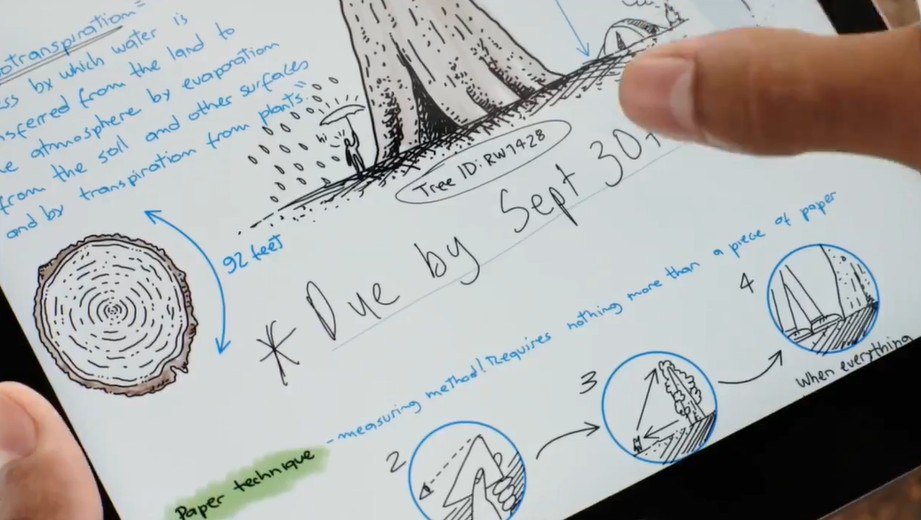 by which water is
from the land to
atmosphere by evaporation
from the soil and other surfaces
and by transpiration from plants."
Tree ID: RW7428
* Due by Sept 30
92 feet
- measuring method! Requires nothing more than a piece of paper
Paper technique
2
3
4
When everything